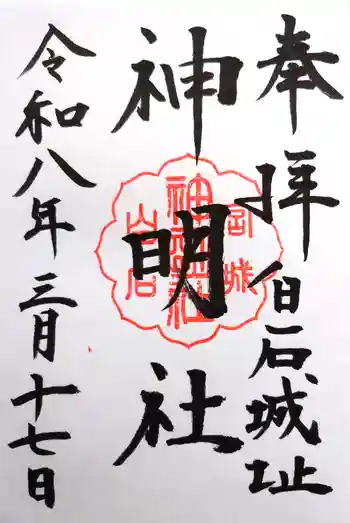 奉拝 白石城址
神明社
令和八年三月十七日
神明社